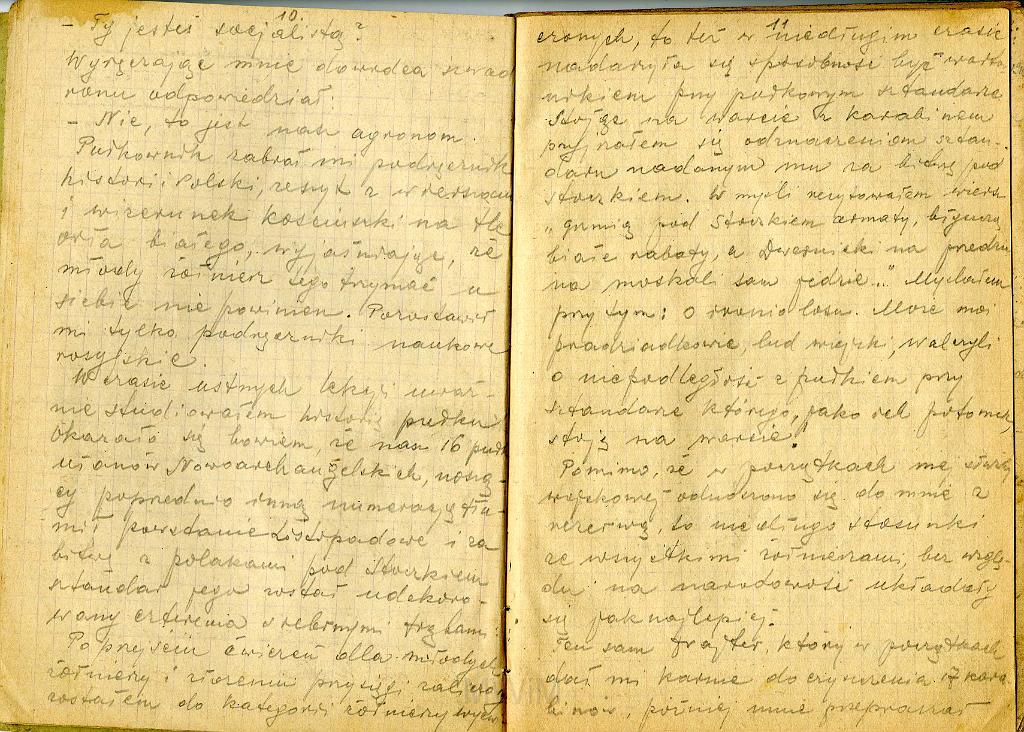 10.
- Ty jesteś socjalistą?
Wyręczając mnie dowódca szwad
ronu odpowiedział:
- Nie, to jest nasz agronom.
Pułkownik zabrał mi podręcznik
historii Polski, zeszyt z wierszami
i wizerunek Kościuszki na tle
orła białego, wyjaśniając, że
młody żołnierz tego trzymać u
siebie nie powinien. Pozostawił
mi tylko podręczniki naukowe
rosyjskie.
W czasie ustnych lekcji uważ-
nie studiowałem historię pułku.
Okazało się bowiem, że nasz 16 pułk
ułanów Nowoarchangielskich, noszą-
cy poprzednio inną numerację tłu-
mił powstanie Listopadowe i za
bitwę z polakami pod Stoczkiem
sztandar jego został udekoro-
wany czterema srebrnymi trąbami.
Po przejściu ćwiczeń dla młodych
żołnierzy i złożeniu przysięgi zaliczony
zostałem do kategorii żołnierzy wyćw
11
czonych, to też w niedługim czasie
nadarzyła się sposobność być warto-
wnikiem przy pułkowym sztandarze
Stojąc na warcie z karabinem
przyjrzałem się odznaczeniom sztan-
daru nadanym mu za bitwę pod
Stoczkiem. W myśli recytowałem wiersz
„grzmią pod Stoczkiem armaty, błyszczą
białe rabaty, a Dwernicki na przedzie
na moskali sam jedzie..." Myślałem
przy tym: o ironio losu. Może moi
pradziadkowie, lud wiejski, walczyli
o niepodległość z pułkiem przy
sztandarze którego, jako ich potomek,
stoję na warcie!
Pomimo, że w początkach mej służby
wojskowej odnoszono się do mnie z
rezerwą, to niedługo stosunki
ze wszystkimi żołnierzami, bez wzglę-
du na narodowość układały
się jaknajlepiej.
Ten sam frajter, który w początkach
dał mi karnie do czyszczenia 7 kara
binów, później mnie przepraszał